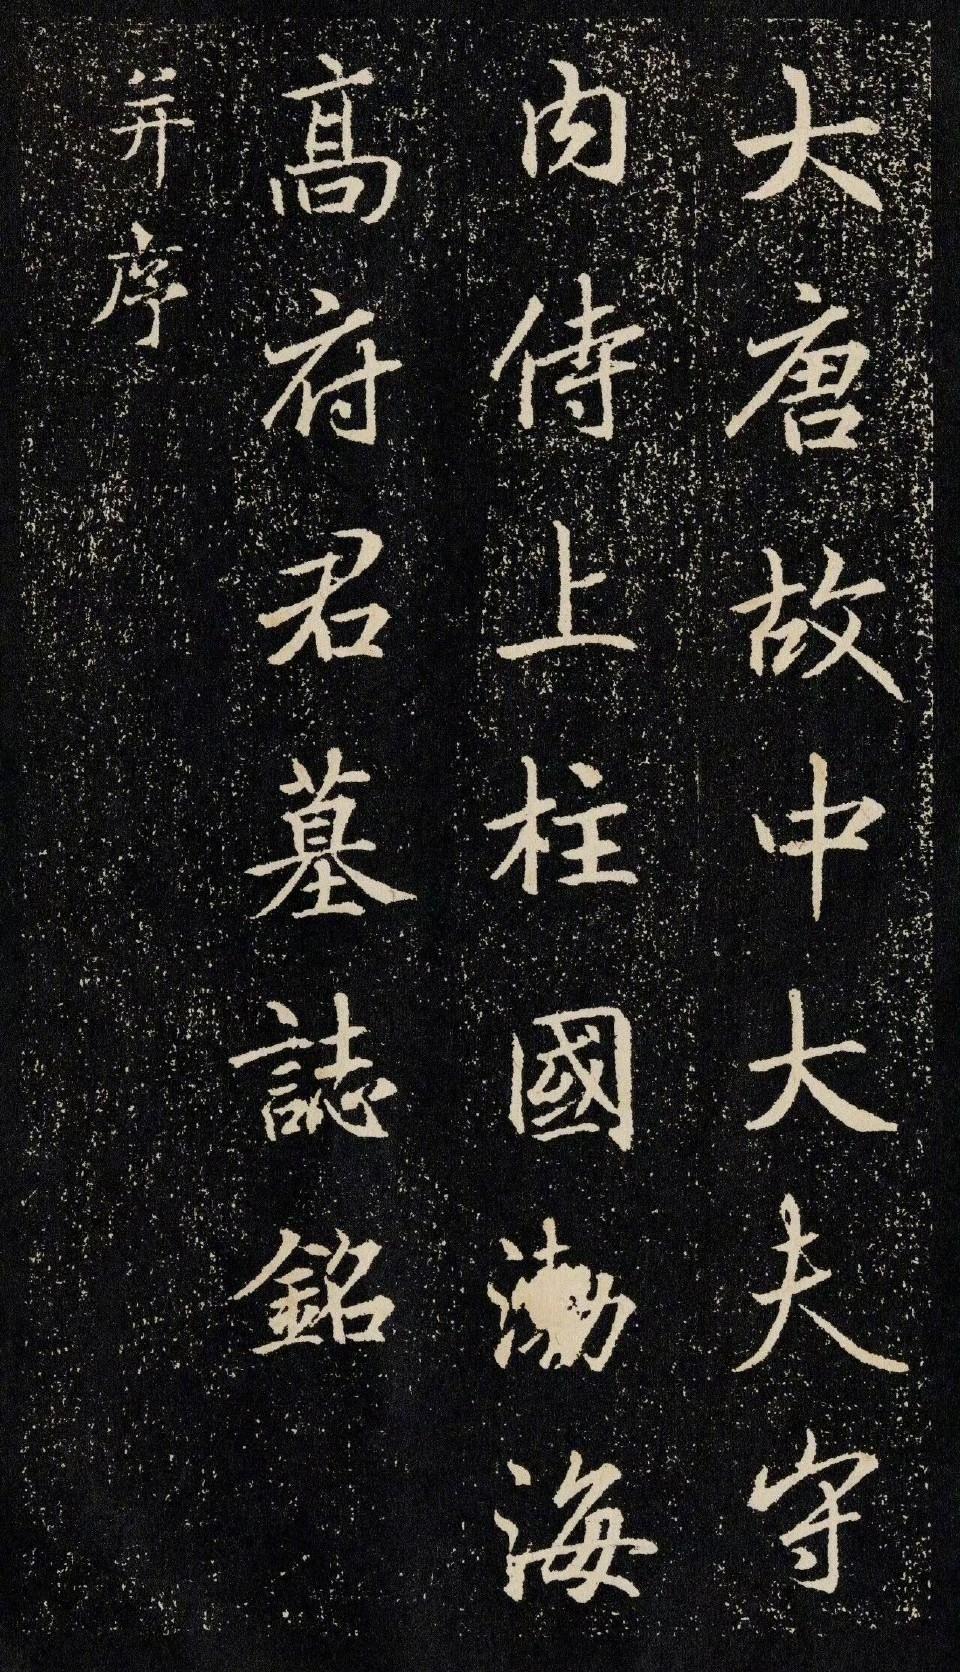 大唐故中大夫守
内侍上柱國渤海
高府君墓誌銘
并序